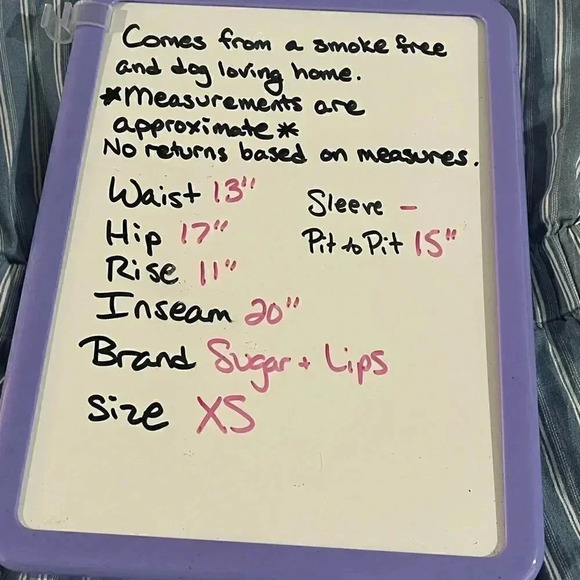 Comes from a smoke free
and dog loving home.
*Measurements are
approximate*
No returns based on measures.
Waist 13"
Sleeve -
Hip 17"
Pit to Pit 15"
Rise 11"
Inseam 20"
Brand Sugar + Lips
Size XS